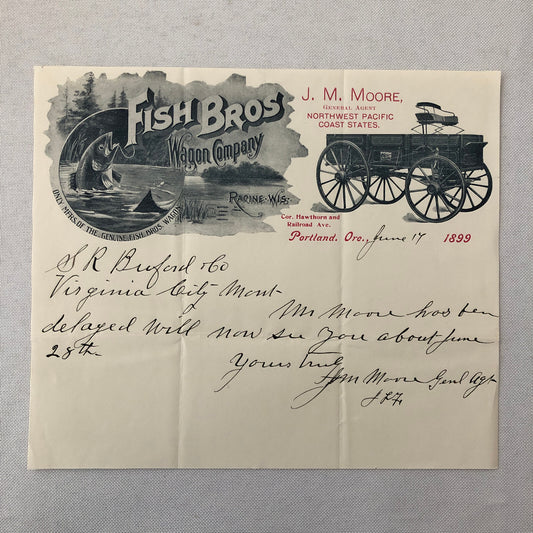 FISH BROS
Wagon Company
RACINE, WIS.
ONLY MFRS. OF THE GENUINE FISH BROS. WAGON
J. M. MOORE,
GENERAL AGENT
NORTHWEST PACIFIC
COAST STATES.
Cor. Hawthorn and
Railroad Ave.
Portland, Ore., June 17 1899
S R Buford & Co
Virginia City Mont
Mr Moore has ben
delayed will now see you about June
28th
Yours truly
J M Moore Genl Agt